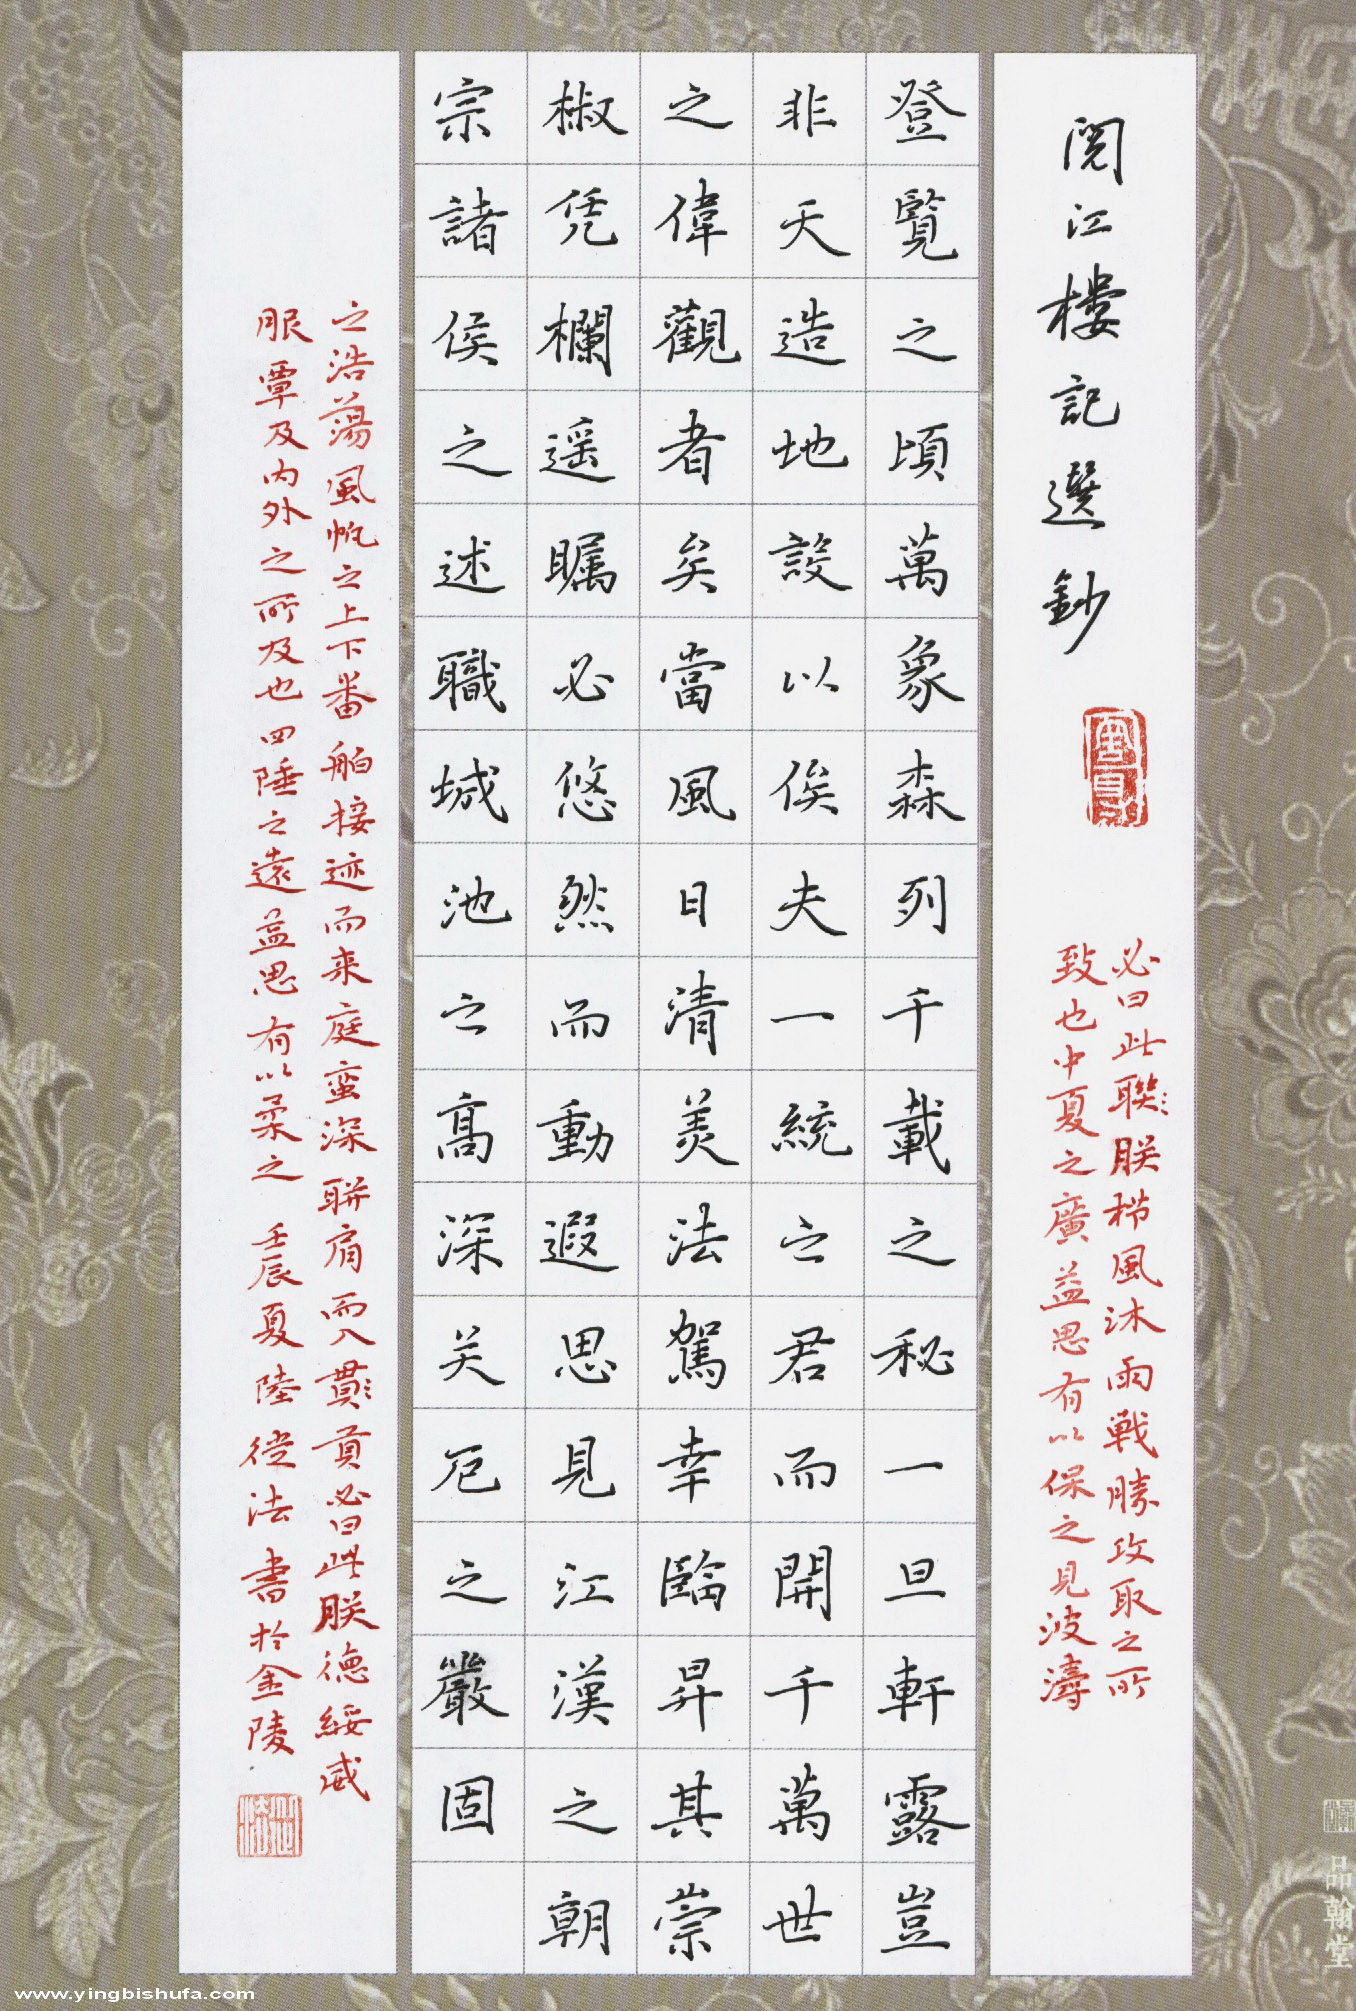 閱江樓記選鈔
必曰此聯朕栉風沐雨戦勝攻取之所
致也中夏之廣益思有以保之見波濤
登覽之頃萬象森列千載之秘一旦軒露豈
非天造地設以俟夫一統之君而開千萬世
之偉觀者矣當風日清美法駕幸臨昇其崇
椒凭欄遥瞩必悠然而動遐思見江漢之朝
宗諸侯之述職城池之高深关厄之嚴固
之浩蕩風帆之上下番舶接迹而来庭蛮深聠肩而入貫貢必曰此朕德綏威
服覃及内外之所及也四陲之遠益思有以柔之 壬辰夏陸從法書於金陵
品翰堂
www.yingbishufa.com